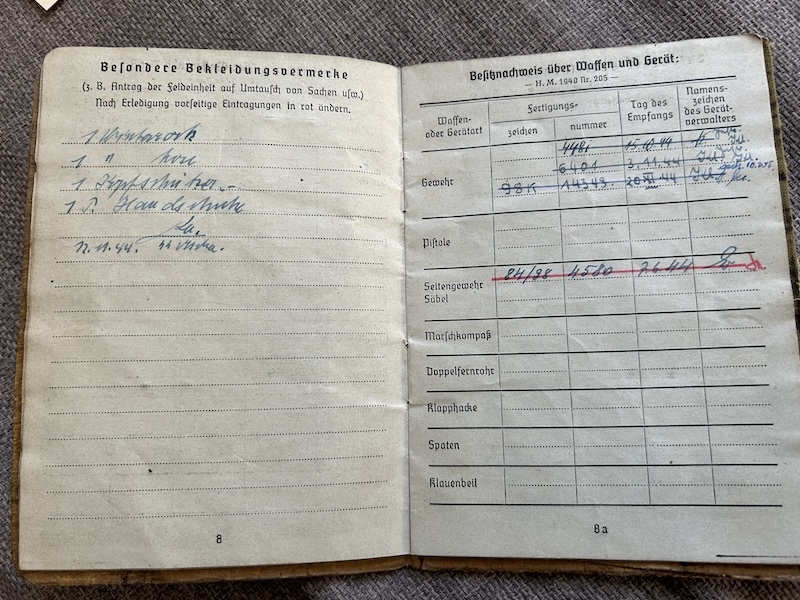 Besondere Bekleidungsvermerke
(z. B. Antrag der Feldeinheit auf Umtausch von Sachen usw.)
Nach Erledigung vorseitige Eintragungen in rot ändern.
1 Winterrock
1 " hose
1 Kopfschützer.-
1 P. Handschuhe
12.11.44.
8
Besitznachweis über Waffen und Gerät:
— H. M. 1940 Nr. 205 —
Waffen- oder Gerätart
Fertigungs-
zeichen
nummer
Tag des Empfangs
Namens-zeichen des Gerät-verwalters
4481 15.10.44
Gewehr 6401 3.11.44
98K 14343. 20.XI.44
Pistole
Seitengewehr Säbel 84/98 4580 7.6.44
Marschkompaß
Doppelfernrohr
Klapphacke
Spaten
Klauenbeil
8a